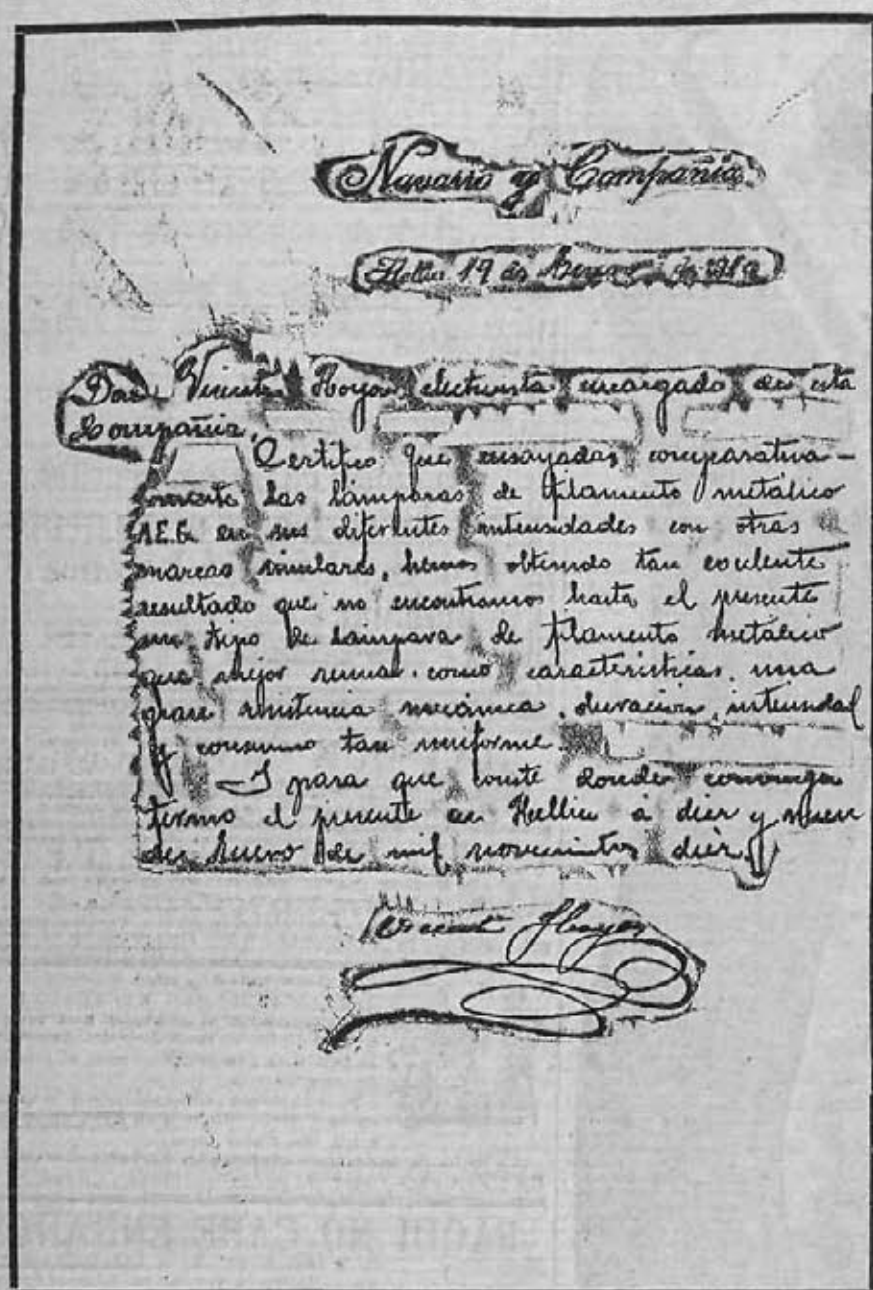 Navarro y Compañia
Hellin 19 de Enero de 1910
Don Vicente Hoyos electricista encargado de esta
Compañia,
Certifico que ensayadas comparativa-
mente las lámparas de filamento metálico
A.E.G. en sus diferentes intensidades con otras
marcas similares, hemos obtenido tan excelente
resultado que no encontramos hasta el presente
un tipo de lampara de filamento metálico
que mejor reuna como caracteristicas, una
gran resistencia mecánica, duracion, intensidad
y consumo tan uniforme.
Y para que conste donde convenga
firmo el presente en Hellin á diez y nueve
de Enero de mil novecientos diez.
Vicente Hoyos